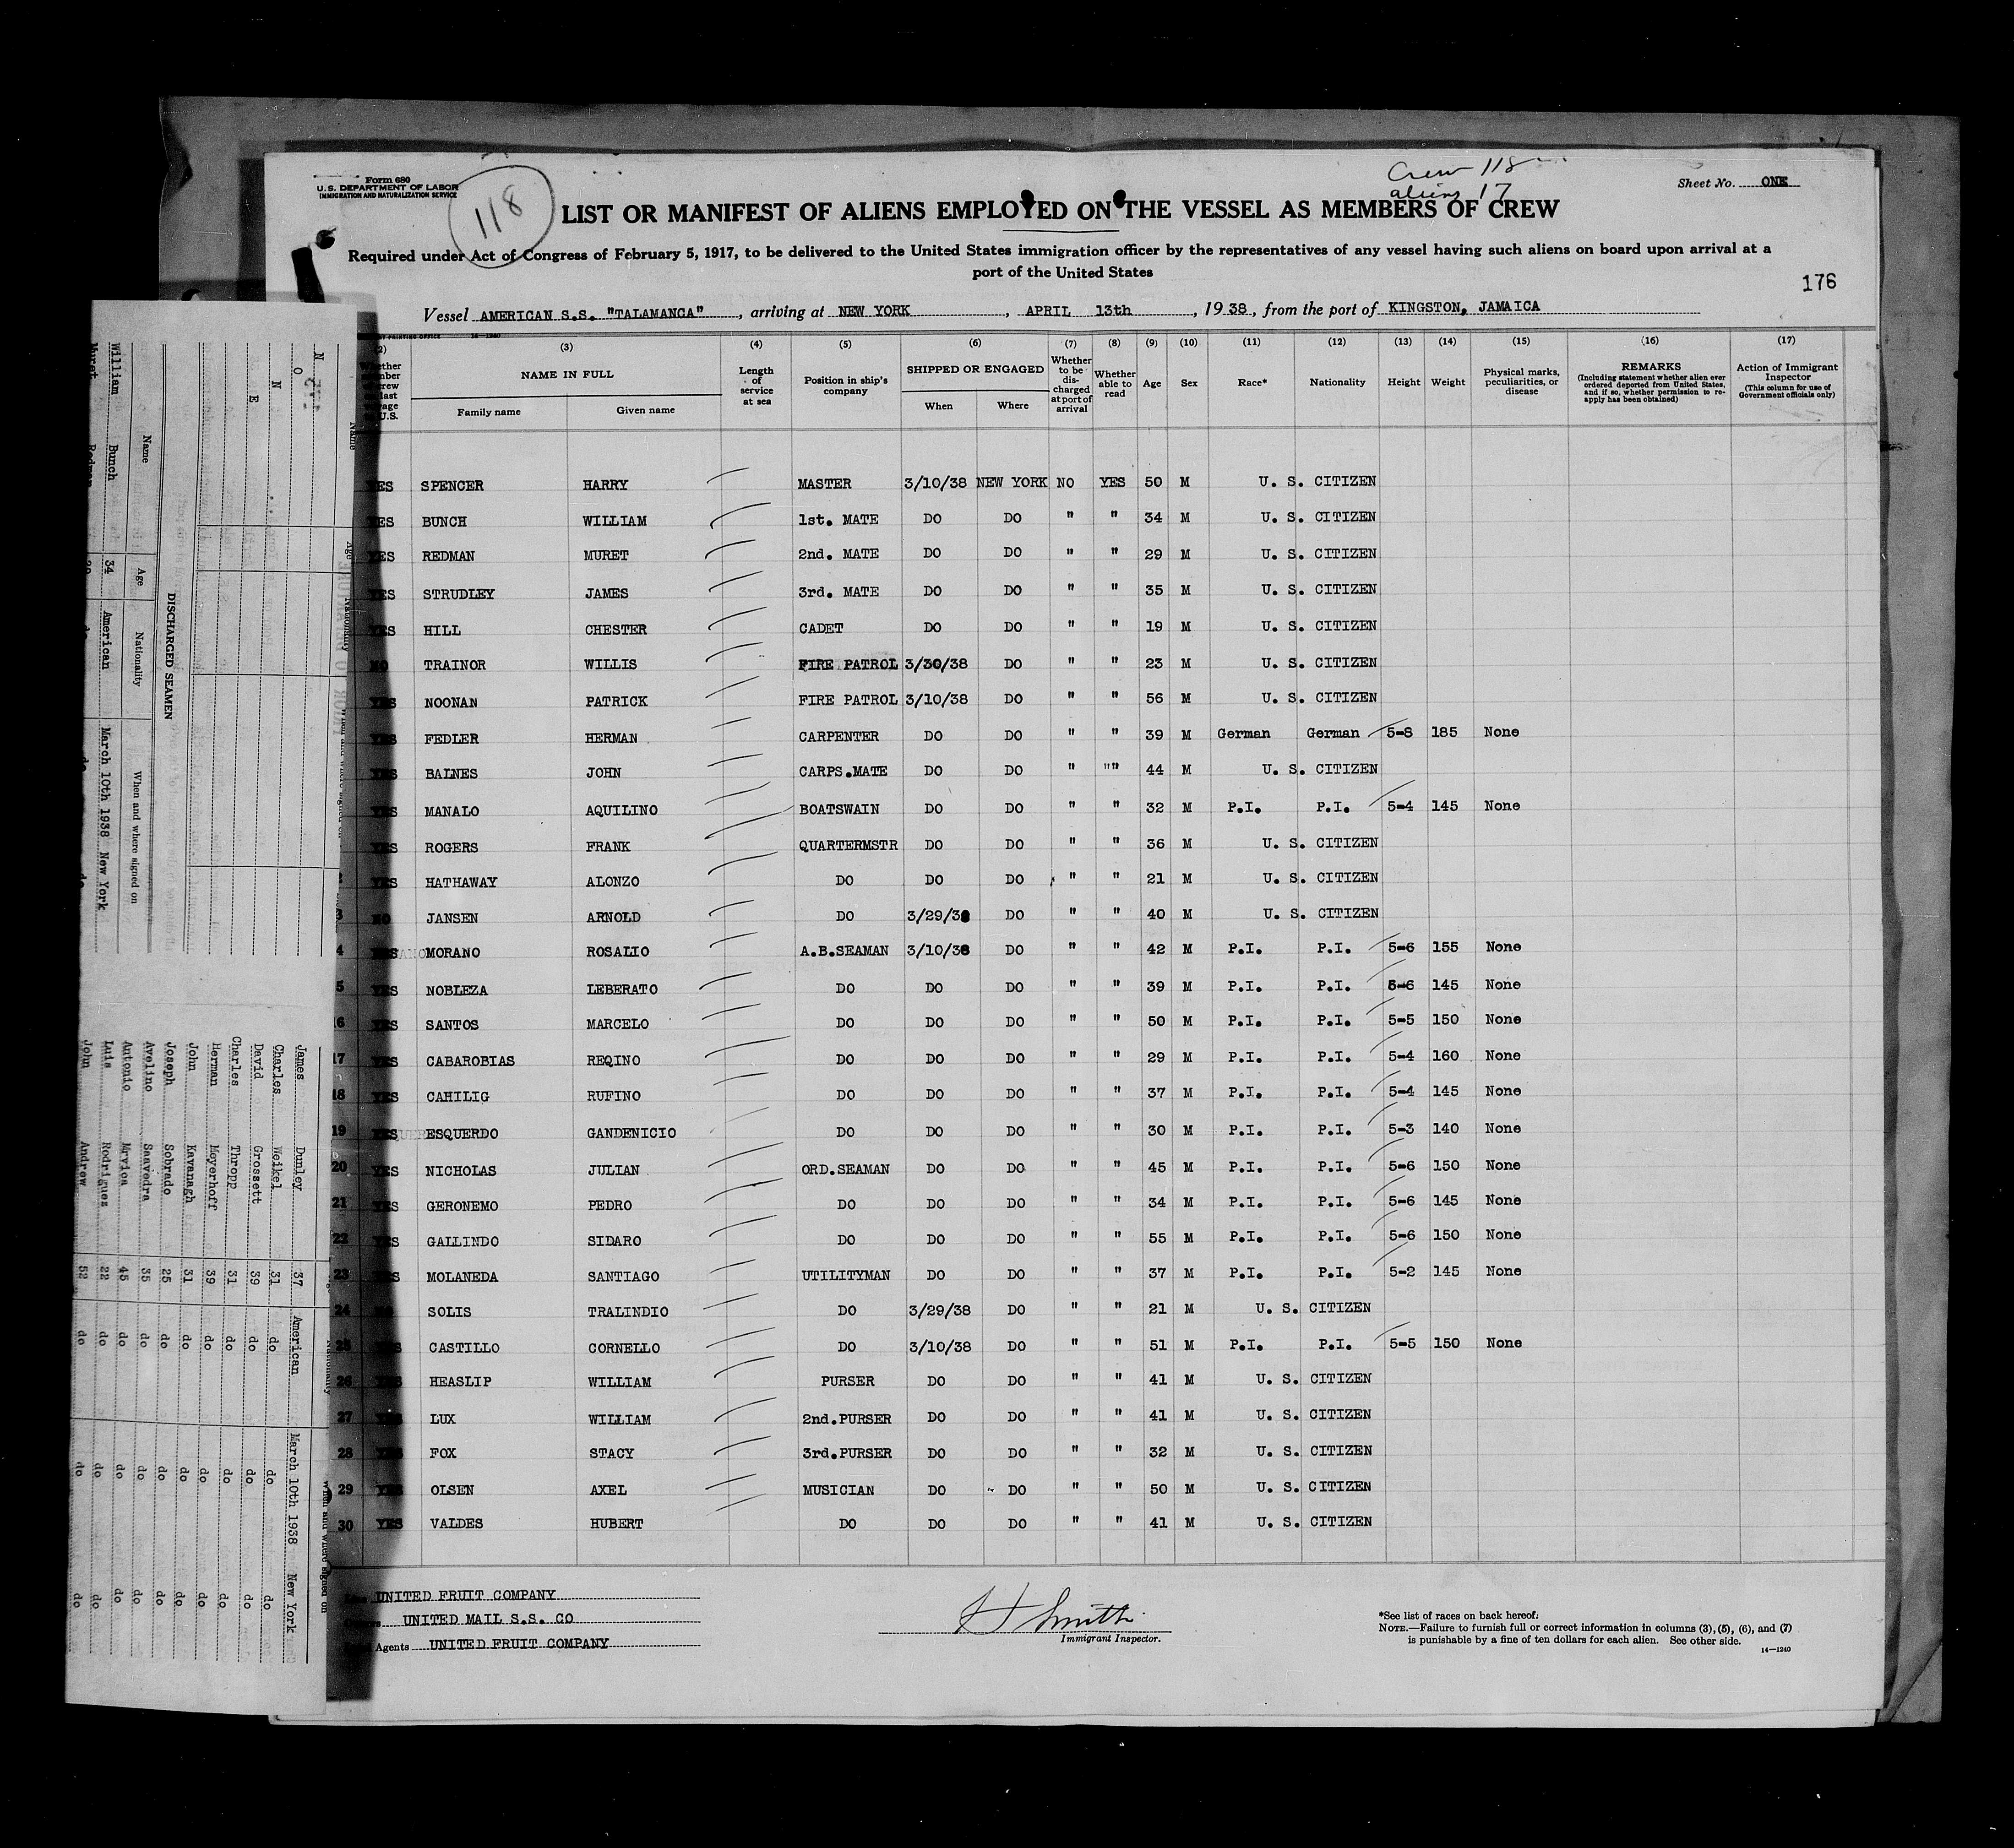 Form 680
U. S. DEPARTMENT OF LABOR
IMMIGRATION AND NATURALIZATION SERVICE
118
Crew 118
aliens 17
Sheet No. ONE
LIST OR MANIFEST OF ALIENS EMPLOYED ON THE VESSEL AS MEMBERS OF CREW
Required under Act of Congress of February 5, 1917, to be delivered to the United States immigration officer by the representatives of any vessel having such aliens on board upon arrival at a
port of the United States
176
Vessel AMERICAN S.S. "TALAMANCA", arriving at NEW YORK, APRIL 13th, 1938, from the port of KINGSTON, JAMAICA
(2) (3) (4) (5) (6) (7) (8) (9) (10) (11) (12) (13) (14) (15) (16) (17)
NAME IN FULL
Family name Given name
Length of service at sea
Position in ship's company
SHIPPED OR ENGAGED
When Where
Whether to be discharged at port of arrival
Whether able to read
Age Sex Race* Nationality Height Weight
Physical marks, peculiarities, or disease
REMARKS
(Including statement whether alien ever ordered deported from United States, and if so, whether permission to reapply has been obtained)
Action of Immigrant Inspector
(This column for use of Government officials only)
YES SPENCER HARRY MASTER 3/10/38 NEW YORK NO YES 50 M U. S. CITIZEN
YES BUNCH WILLIAM 1st. MATE DO DO " " 34 M U. S. CITIZEN
YES REDMAN MURET 2nd. MATE DO DO " " 29 M U. S. CITIZEN
YES STRUDLEY JAMES 3rd. MATE DO DO " " 35 M U. S. CITIZEN
YES HILL CHESTER CADET DO DO " " 19 M U. S. CITIZEN
NO TRAINOR WILLIS FIRE PATROL 3/30/38 DO " " 23 M U. S. CITIZEN
YES NOONAN PATRICK FIRE PATROL 3/10/38 DO " " 56 M U. S. CITIZEN
YES FEDLER HERMAN CARPENTER DO DO " " 39 M German German 5-8 185 None
YES BALNES JOHN CARPS.MATE DO DO " "" 44 M U. S. CITIZEN
YES MANALO AQUILINO BOATSWAIN DO DO " " 32 M P.I. P.I. 5-4 145 None
YES ROGERS FRANK QUARTERMSTR DO DO " " 36 M U. S. CITIZEN
YES HATHAWAY ALONZO DO DO DO " " 21 M U. S. CITIZEN
3 NO JANSEN ARNOLD DO 3/29/38 DO " " 40 M U. S. CITIZEN
4 YES MORANO ROSALIO A.B.SEAMAN 3/10/38 DO " " 42 M P.I. P.I. 5-6 155 None
5 YES NOBLEZA LEBERATO DO DO DO " " 39 M P.I. P.I. 5-6 145 None
16 YES SANTOS MARCELO DO DO DO " " 50 M P.I. P.I. 5-5 150 None
17 YES CABAROBIAS REQINO DO DO DO " " 29 M P.I. P.I. 5-4 160 None
18 YES CAHILIG RUFINO DO DO DO " " 37 M P.I. P.I. 5-4 145 None
19 YES ESQUERDO GANDENICIO DO DO DO " " 30 M P.I. P.I. 5-3 140 None
20 YES NICHOLAS JULIAN ORD.SEAMAN DO DO " " 45 M P.I. P.I. 5-6 150 None
21 YES GERONEMO PEDRO DO DO DO " " 34 M P.I. P.I. 5-6 145 None
22 YES GALLINDO SIDARO DO DO DO " " 55 M P.I. P.I. 5-6 150 None
23 YES MOLANEDA SANTIAGO UTILITYMAN DO DO " " 37 M P.I. P.I. 5-2 145 None
24 NO SOLIS TRALINDIO DO 3/29/38 DO " " 21 M U. S. CITIZEN
25 YES CASTILLO CORNELLO DO 3/10/38 DO " " 51 M P.I. P.I. 5-5 150 None
26 YES HEASLIP WILLIAM PURSER DO DO " " 41 M U. S. CITIZEN
27 YES LUX WILLIAM 2nd.PURSER DO DO " " 41 M U. S. CITIZEN
28 YES FOX STACY 3rd.PURSER DO DO " " 32 M U. S. CITIZEN
29 YES OLSEN AXEL MUSICIAN DO DO " " 50 M U. S. CITIZEN
30 YES VALDES HUBERT DO DO DO " " 41 M U. S. CITIZEN
UNITED FRUIT COMPANY
UNITED MAIL S.S. CO
Agents UNITED FRUIT COMPANY
H Smith
Immigrant Inspector.
*See list of races on back hereof.
NOTE.—Failure to furnish full or correct information in columns (3), (5), (6), and (7)
is punishable by a fine of ten dollars for each alien. See other side.
14—1240
N O N E
DISCHARGED SEAMEN
Name Age Nationality When and where signed on
William Bunch 34 American March 10th 1938 New York
Muret Redman
James Dunley 37 American March 10th 1938 New York
Charles Weikel 31 do do do
David Grossett 39 do do do
Charles Thropp 31 do do do
Herman Meyerhoff 39 do do do
John Kavanagh 31 do do do
Joseph Sobrado 25 do do do
Avelino Saavedra 35 do do do
Antonio Mrvica 45 do do do
Luis Rodriguez 22 do do do
John Andrew 52 do do do